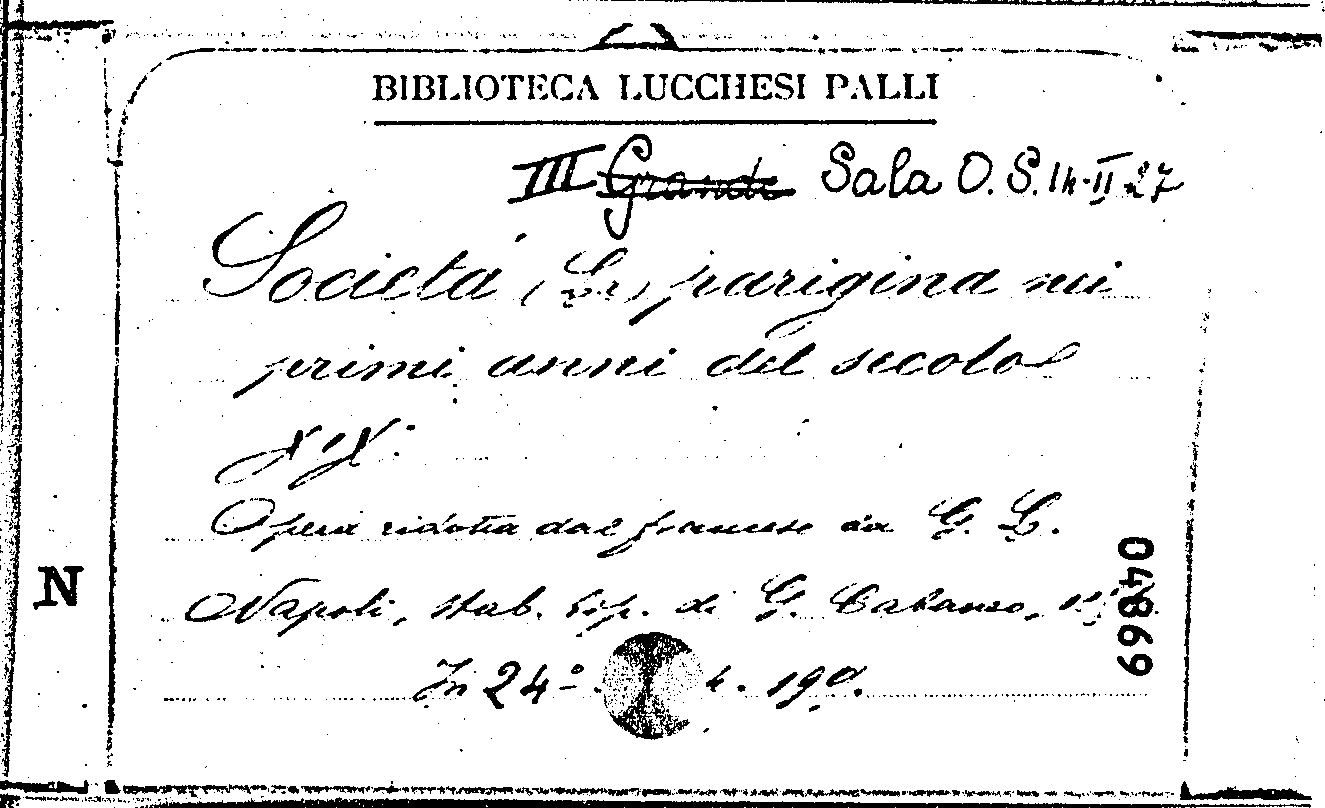 BIBLIOTECA LUCCHESI PALLI
III Grande Sala O. S. 14-II-27
Società (La) parigina nei
primi anni del secolo
XIX.
Opera ridotta dal francese da G. L.
N
Napoli, stab. tip. di G. Cataneo,
04869
In 24º. 190.